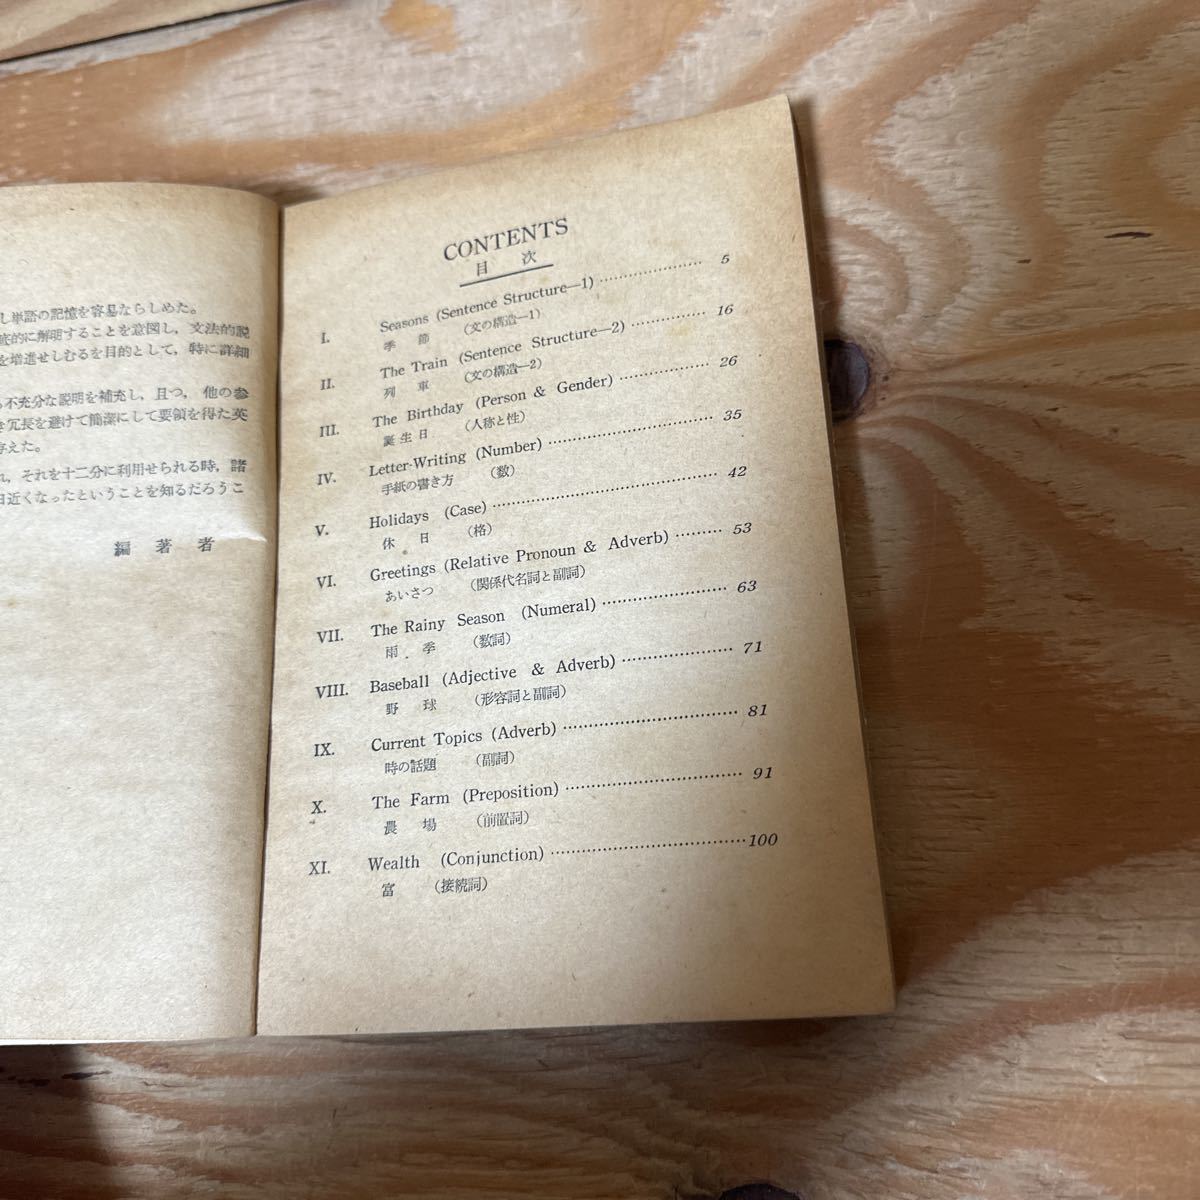 し単語の記憶を容易ならしめた。
底的に解明することを意図し，文法的説
を増進せしむるを目的として，特に詳細
不充分な説明を補充し，且つ，他の参
き冗長を避けて簡潔にして要領を得た英
与えた。
れ，それを十二分に利用せられる時，諸
日近くなったということを知るだろうこ
編著者
CONTENTS
目次
I. Seasons (Sentence Structure—1) 5
季節 (文の構造—1)
II. The Train (Sentence Structure—2) 16
列車 (文の構造—2)
III. The Birthday (Person & Gender) 26
誕生日 (人称と性)
IV. Letter-Writing (Number) 35
手紙の書き方 (数)
V. Holidays (Case) 42
休日 (格)
VI. Greetings (Relative Pronoun & Adverb) 53
あいさつ (関係代名詞と副詞)
VII. The Rainy Season (Numeral) 63
雨季 (数詞)
VIII. Baseball (Adjective & Adverb) 71
野球 (形容詞と副詞)
IX. Current Topics (Adverb) 81
時の話題 (副詞)
X. The Farm (Preposition) 91
農場 (前置詞)
XI. Wealth (Conjunction) 100
富 (接続詞)